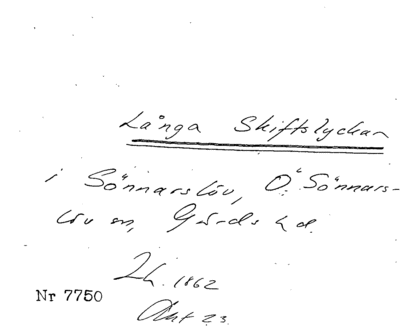 Långa Skiftslyckan
i Sönnarslöv, Ö. Sönnars-
löv sn, Gärds hd.
Lh. 1862
Akt 23
Nr 7750